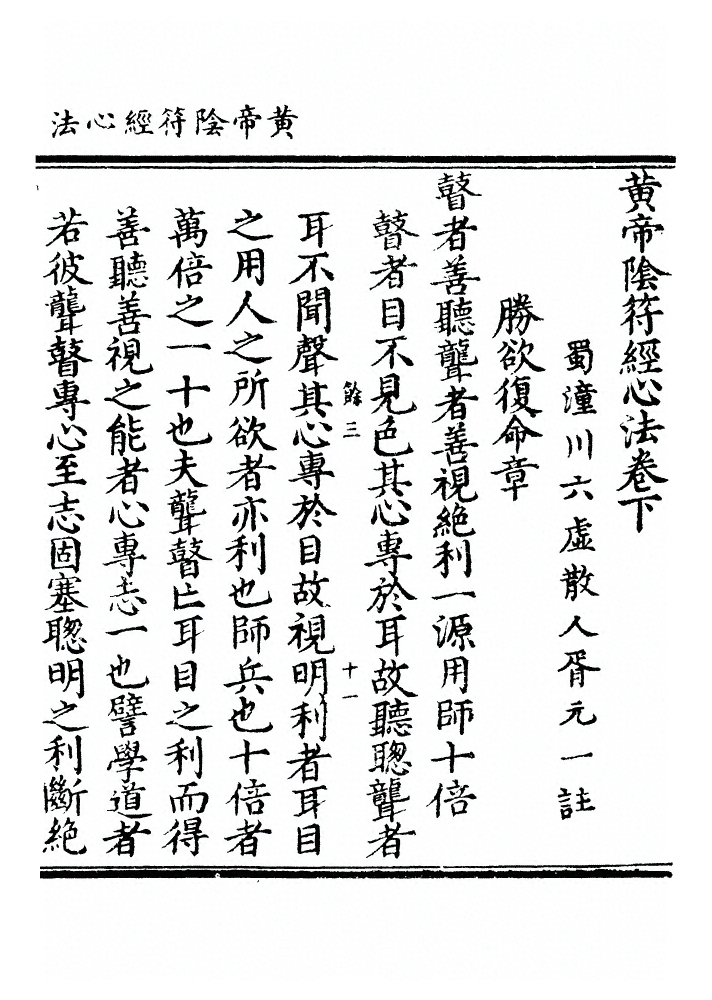 黃帝陰符經心法
黃帝陰符經心法卷下
蜀潼川六虛散人胥元一註
勝欲復命章
瞽者善聽聾者善視絶利一源用師十倍
瞽者目不見色其心專於耳故聽聦聾者
餘三
十一
耳不聞聲其心專於目故視明利者耳目
之用人之所欲者亦利也師兵也十倍者
萬倍之一十也夫聾瞽亡耳目之利而得
善聽善視之能者心專志一也譬學道者
若彼聾瞽專心至志固塞聦明之利斷絶